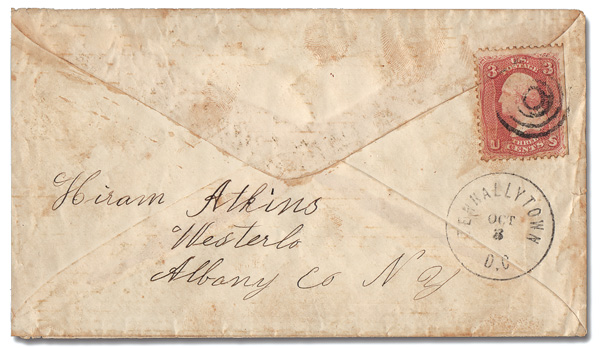 3 U.S. 3
POSTAGE
THREE
U CENTS S
Hiram Atkins
Westerlo
Albany Co N Y
TENNALLYTOWN
OCT
3
D.C